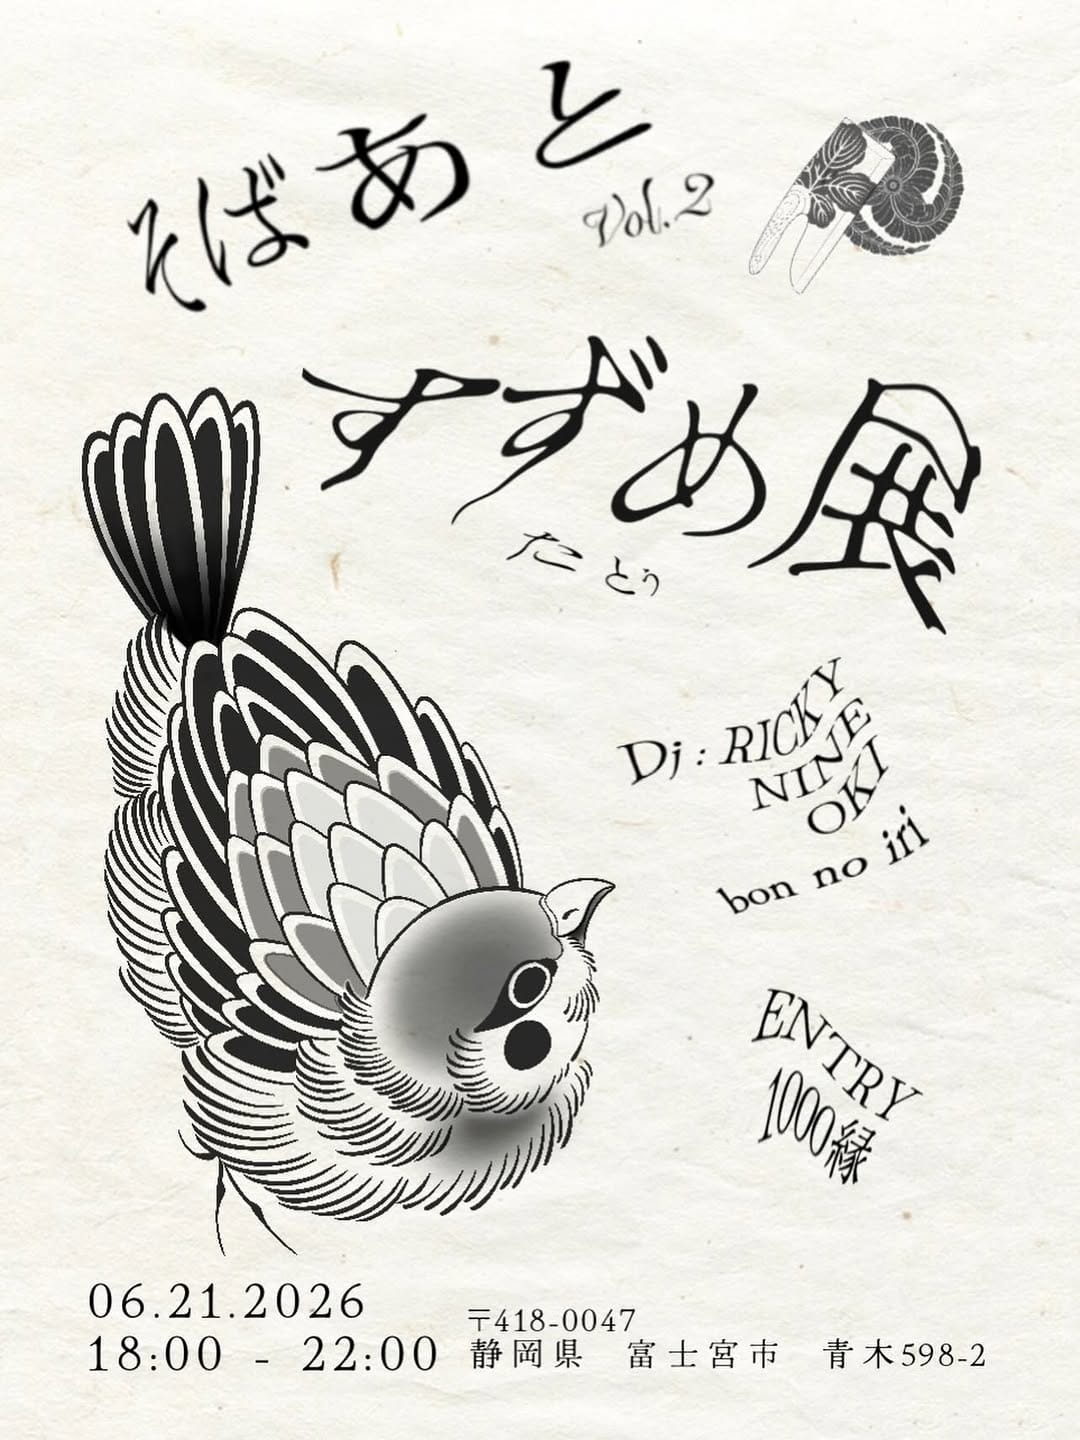 そばあと
Vol.2
すずめ展
たとぅ
Dj : RICKY
NINE
OKI
bon no iri
ENTRY
1000縁
06.21.2026
18:00 - 22:00
〒418-0047
静岡県 富士宮市 青木598-2